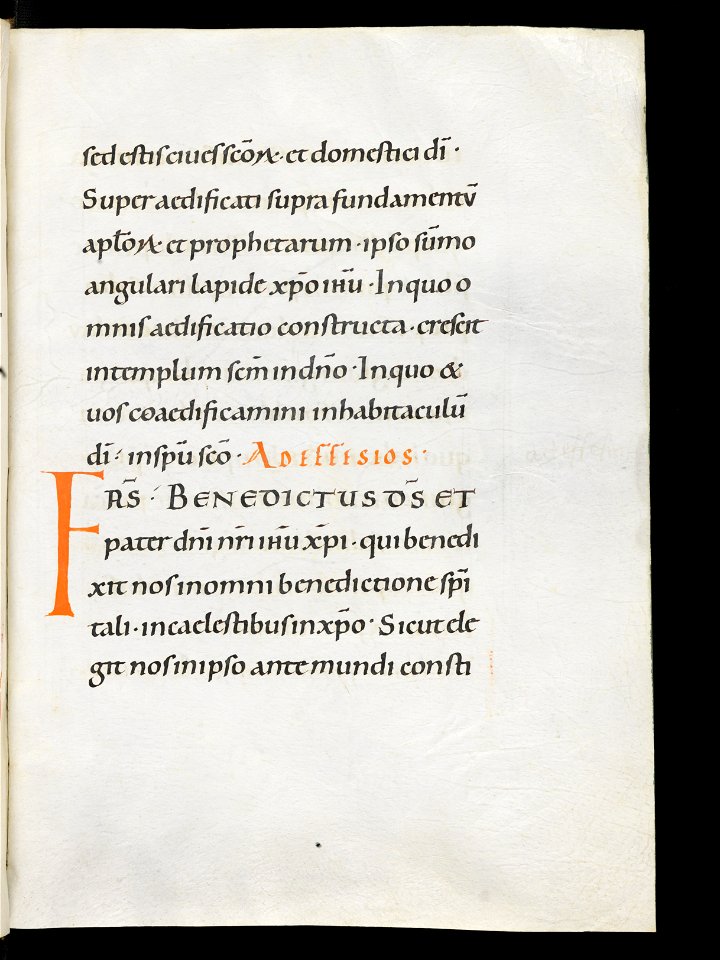 sed estis ciues scōꝝ · et domestici dī ·
Superaedificati supra fundamentū
aptōꝝ et prophetarum · ipso sūmo
angulari lapide xp̄o ihū · In quo o
mnis aedificatio constructa · crescit
in templum scm̄ in dn̄o · In quo &
uos coaedificamini in habitaculū
dī · in sp̄u scō · AD EFFESIOS ·
FRS̄ · BENEDICTUS DS̄ ET
pater dn̄i nr̄i ihū xp̄i · qui benedi
xit nos in omni benedictione sp̄i
tali · in caelestibus in xp̄o · Sicut ele
git nos in ipso ante mundi consti